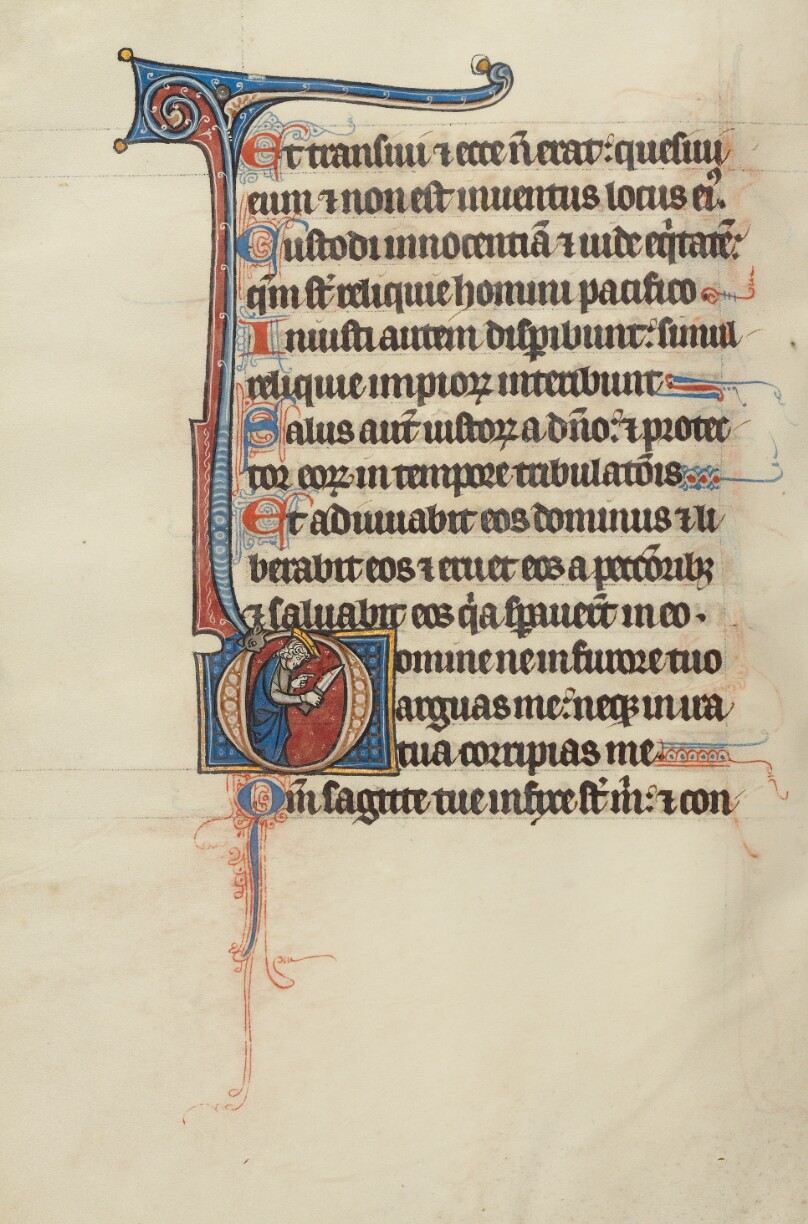 Et transiui ⁊ ecce ñ erat: quesiui
eum ⁊ non est inuentus locus ei᷒.
Custodi innocentiā ⁊ uide eq̇tatē:
qm̄ st̄ reliquie homini pacifico
Iniusti autem disꝑibunt: simul
reliquie impioꝝ interibunt
Salus aut̄ iustoꝝ a dño: ⁊ protec
tor eoꝝ in tempore tribulatōis
Et adiuuabit eos dominus ⁊ li
berabit eos ⁊ eruet eos a peccōribꝫ
⁊ saluabit eos q̇a sꝑauer̄t in eo.
Domine ne in furore tuo
arguas me: neqꝫ in ira
tua corripias me
Qm̄ sagitte tue infixe st̄ m̄: ⁊ con